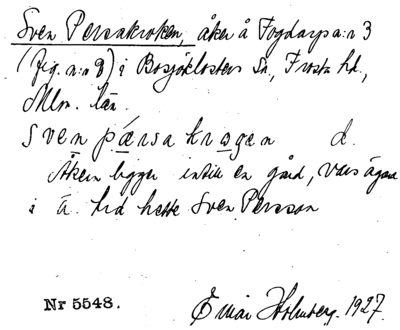 Sven Persakroken, åker å Fogdarp a:n 3
(fig. n:n 8) i Bosjöklosters Sn, Frosta hd.,
Mlm. län.
Sven pærsa krogen d.
Åkern ligger intill en gård, vars ägare
i ä. tid hette Sven Persson
Nr 5548.
Einar Holmberg. 1927.